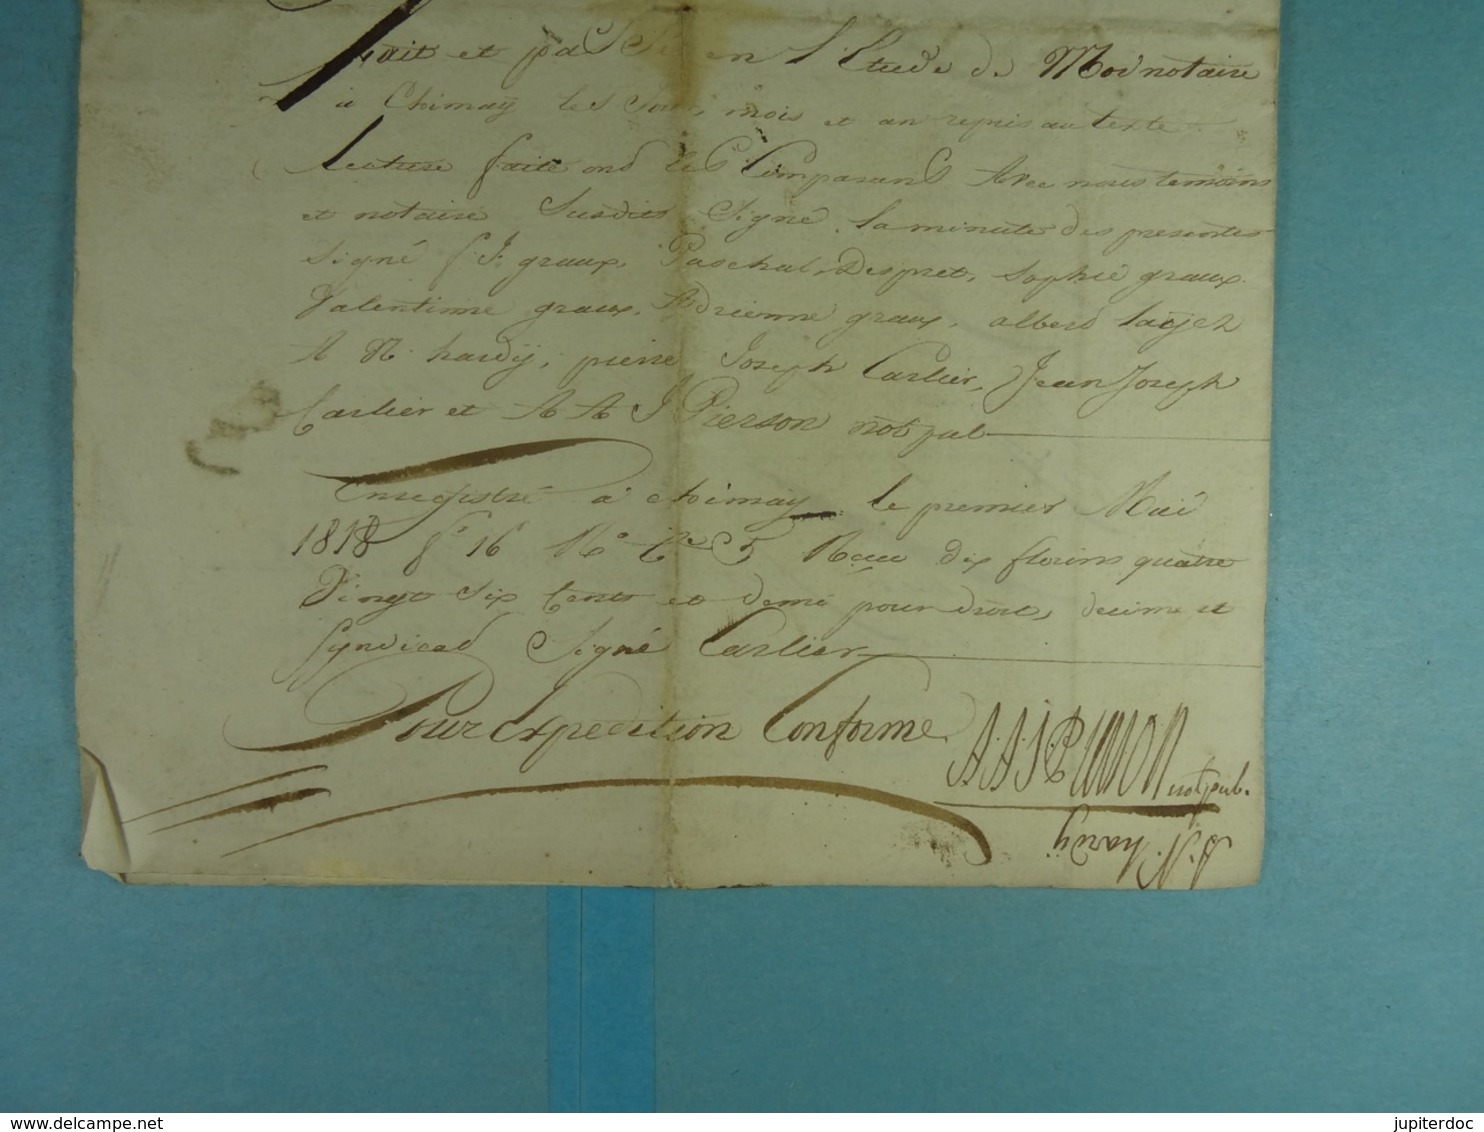 fait et passé en l'Etude de Moi notaire
à Chimay les Jour, mois et an repris au texte
Lecture faite ond les Comparans Avec nous temoins
et notaire Susdits Signé la minute des presentes
Signé f. J. graux, Paschal Despret, Sophie graux
Valentinne graux, Adrienne graux, albert
A N hardÿ, pierre Joseph Carlier, Jean Joseph
Carlier et A A J Pierson not pub
Enregistré à chimay le premier Mai
1818 f° 16 R° Ce 5 Recu dix florins quatre
Vingt six Cents et demi pour droit, decime et
Syndicad Signé Carlier
Pour Expedition Conforme.
A. A. J. Pierson not pub.
A. N. hardÿ
jupiterdoc